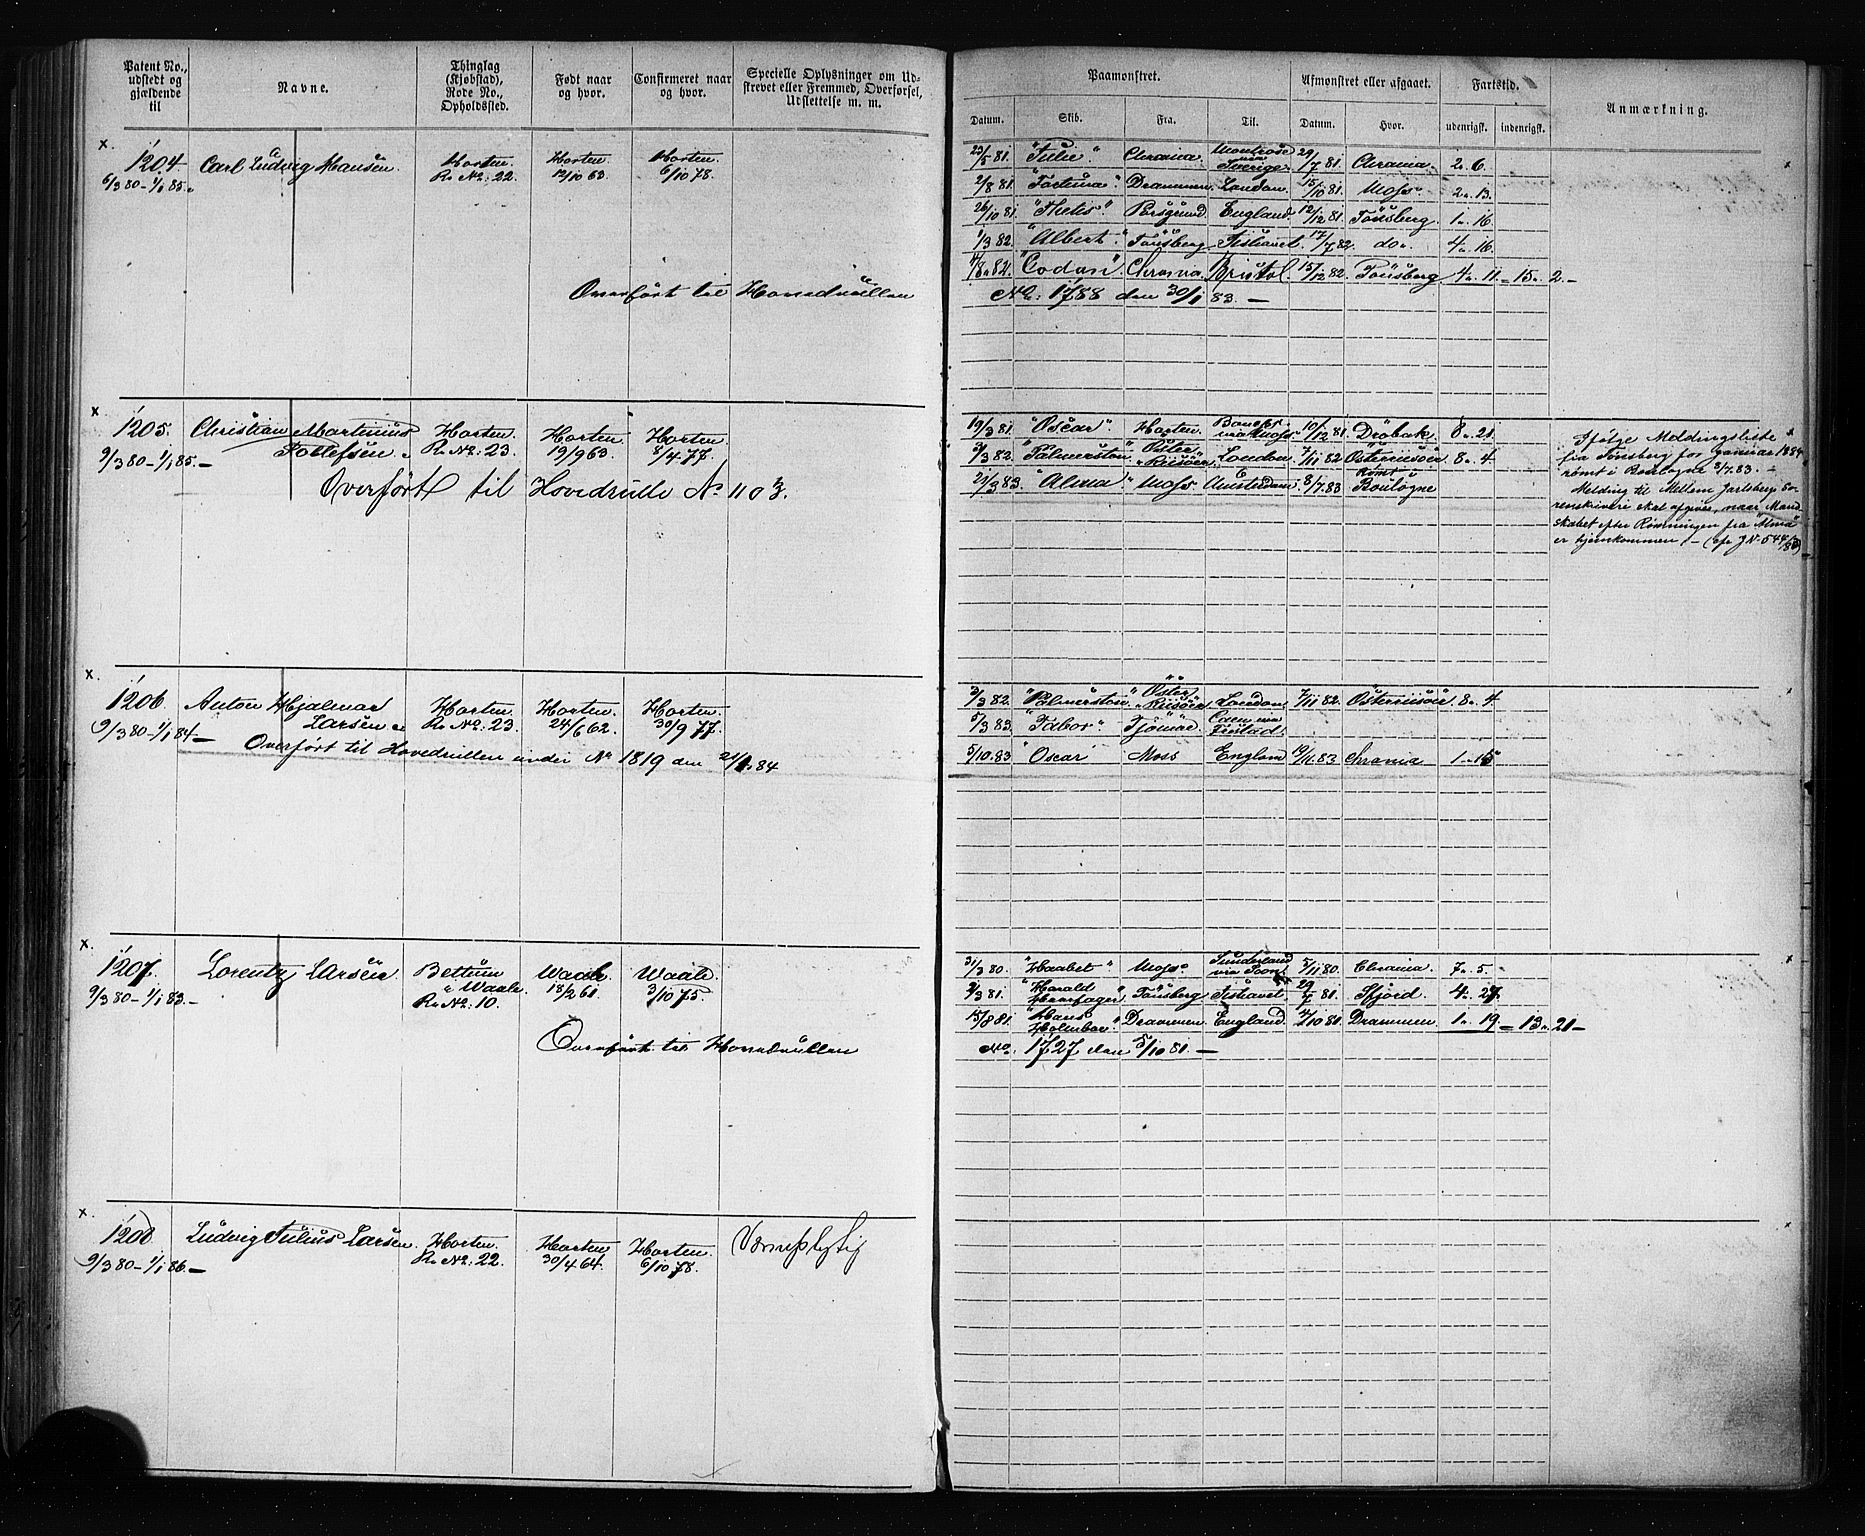 Patent No., udstedt og gjældende til
Navne.
Thinglag (Kjøbstad), Rode No., Opholdssted.
Født naar og hvor.
Confirmeret naar og hvor.
Specielle Oplysninger om Udstrevet eller Fremmed, Overførsel, Udslettelse m. m.
Paamønstret.
Afmønstret eller afgaaet.
Fartstid.
Anmærkning.
Datum. Skib. Fra. Til. Datum. Hvor. udenrigsk. indenrigsk.
x.
1204. Carl Ludvig Hansen Horten. Horten. Horten.
6/3 80 - 1/1 85. R. No: 22. 12/10 63. 6/10 78.
Overført til Hovedrullen
23/5 81. "Julie" Chrania. Montrose Sverige 29/7 81. Chrania 2. 6.
2/8 81. "Fortuna" Drammen London 15/10 81. Moss 2. 13.
26/10 81. "Thetis" Porsgrund England. 12/12 81. Tönsberg. 1. 16.
1/3 82. "Albert" Tönsberg Ishavet 17/7 82. do. 4. 16.
82. "Codan" Chrania Bristol 15/12 82. Tönsberg 4. 11. = 15. 2. -
No: 1788 den 30/1 83. -
x
1205. Christian Martinius Horten. Horten. Horten.
Tollefsen. R. No: 23. 19/9 63. 8/4 77.
9/3 80 - 1/1 85. -
Overført til Hovedrulle No 1103.
19/3 81. "Oscar" Horten. Moss 10/12 81. Dröbak 8. 21.
3/3 82. "Palmerston" Öster Riisöer London 7/11 82 Österriisöer 8. 4.
21/3 83. "Alma" Moss Amsterdam 8/7 83 Rømt Boulogne
Ifölge Meldingsliste
fra Tönsberg for Januar 1884
rømt i Boulogne 8/7. 83. -
Melding til Mellem Jarlsberg So-
renskriveri skal afgives, naar Mand-
skabet efter Rømningen fra "Alma"
er hjemkommen. -
x.
1206. Anton Hjalmar Horten. Horten. Horten.
Larsen. R. No: 23. 24/6 62. 30/9 77.
9/3 80 - 1/1 84 -
Overført til Hovedrullen under No 1819 den 84
3/3 82. "Palmerston" Öster Riisöer London 7/11 82. Österriisöer 8. 4.
5/3 83. "Tabor" Tjömöe Caen
5/10.83 "Oscar" Moss England 19/11.83 Chrania 1. 15
x.
1207. Lorentz Larsen. Bettum Waale. Waale.
9/3 80 - 1/1 83. - Waale. R. No: 10. 18/2 61. 3/10 75.
Overført til Hovedrullen
31/3 80. "Haabet" Moss Sunderland 5/11 80. Chrania. 7. 5.
3/3 81. "Harald Haarfager" Tönsberg Ishavet 29/7 81. Sfjord 4. 27.
15/8 81. "Hans Holmboe" Drammen England 4/10 81. Drammen. 1. 19 = 13. 21 -
No: 1727 den 5/10 81. -
x.
1208. Ludvig Julius Larsen. Horten. Horten. Horten. Værnepligtig
9/3 80 - 1/1 86. - R. No: 22. 30/4 64. 6/10 78.